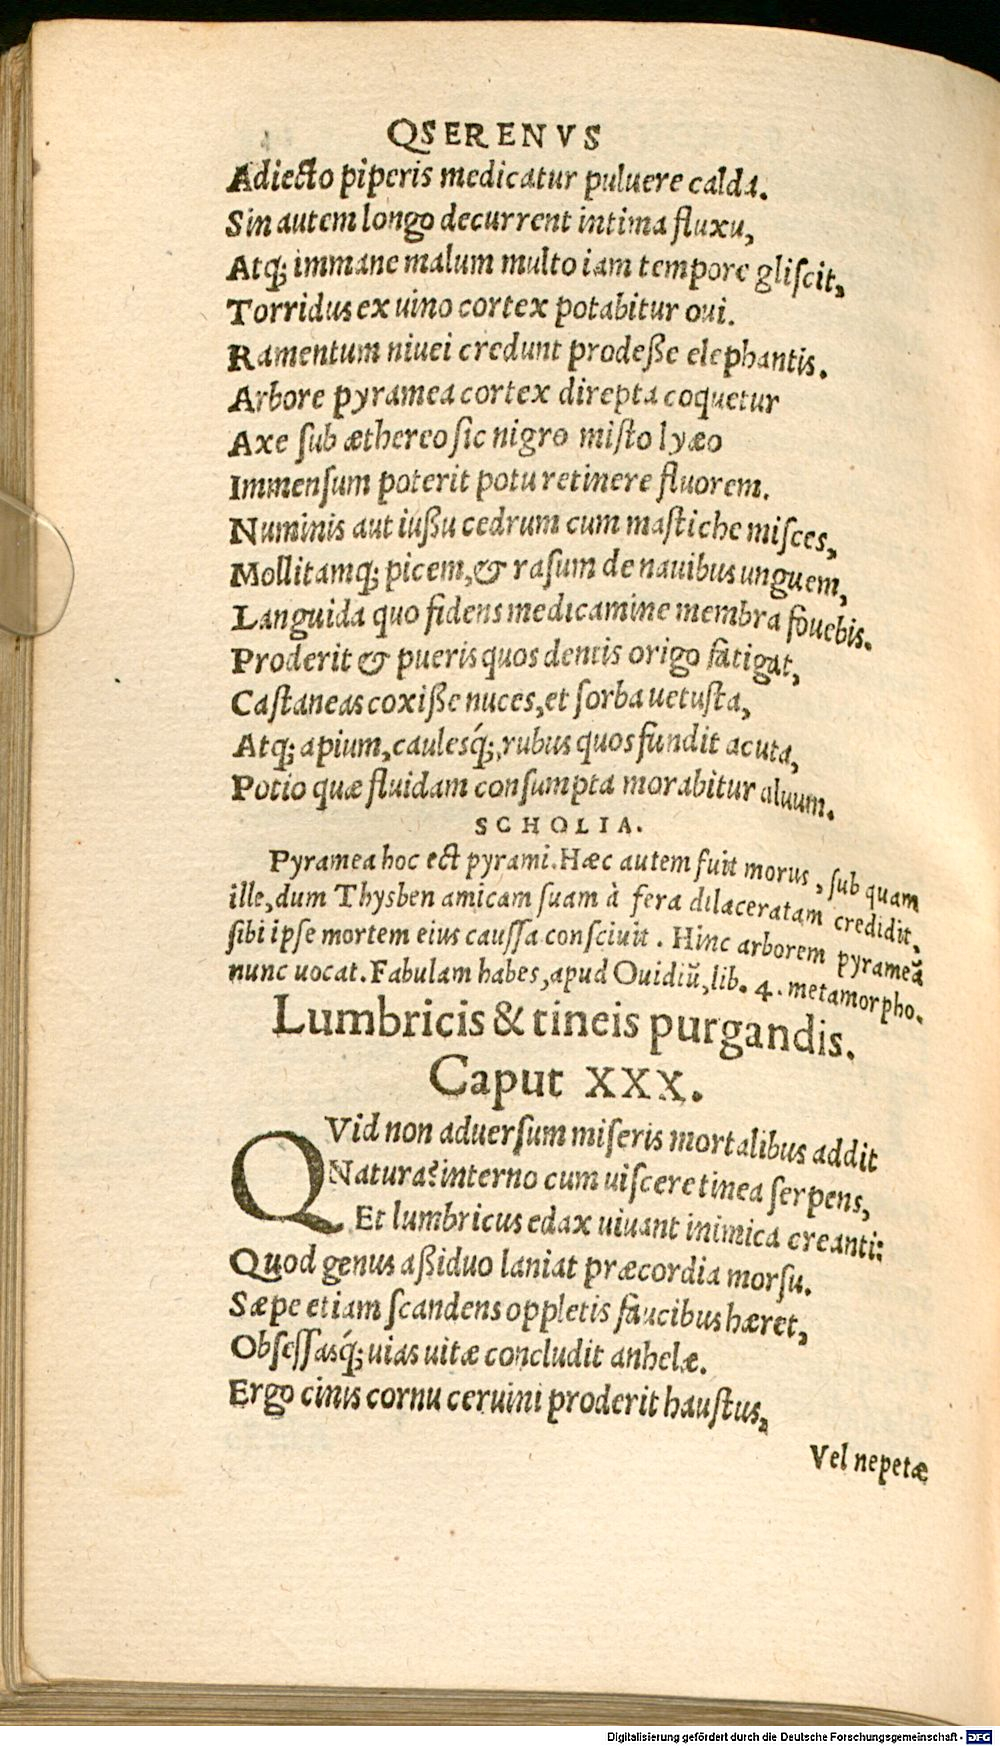 QSERENVS
Adiecto piperis medicatur puluere calda.
Sin autem longo decurrent intima fluxu,
Atq; immane malum multo iam tempore gliſcit,
Torridus ex uino cortex potabitur oui.
Ramentum niuei credunt prodeße elephantis.
Arbore pyramea cortex direpta coquetur
Axe ſub æthereo ſic nigro miſto lyæo
Immenſum poterit potu retinere fluorem.
Numinis aut iußu cedrum cum maſtiche miſces,
Mollitamq; picem, & raſum de nauibus unguem,
Languida quo fidens medicamine membra fouebis.
Proderit & pueris quos dentis origo fatigat,
Caſtaneas coxiße nuces, et ſorba uetuſta,
Atq; apium, caulesq́;, rubus quos fundit acuta,
Potio quæ fluidam conſumpta morabitur aluum.
SCHOLIA.
Pyramea hoc est pyrami. Hæc autem fuit morus, ſub quam
ille, dum Thysben amicam ſuam à fera dilaceratam credidit,
ſibi ipſe mortem eius cauſſa conſciuit. Hinc arborem pyrameā
nunc uocat. Fabulam habes, apud Ouidiū, lib. 4. metamorpho.
Lumbricis & tineis purgandis.
Caput XXX.
QVid non aduerſum miſeris mortalibus addit
Natura? interno cum uiſcere tinea ſerpens,
Et lumbricus edax uiuant inimica creanti:
Quod genus aßiduo laniat præcordia morſu.
Sæpe etiam ſcandens oppletis faucibus hæret,
Obſeſſasq́; uias uitæ concludit anhelæ.
Ergo cinis cornu ceruini proderit hauſtus,
Vel nepetæ
Digitalisierung gefördert durch die Deutsche Forschungsgemeinschaft - DFG